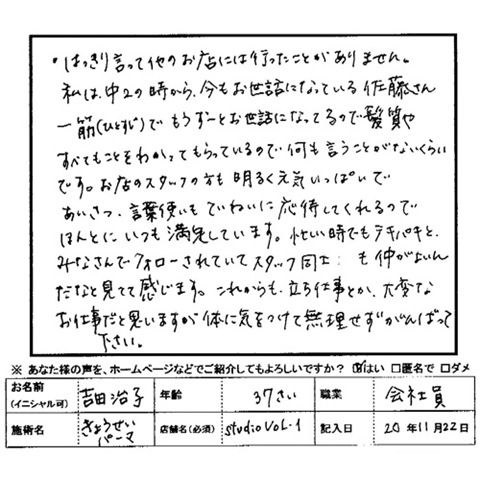 ・はっきり言って他のお店には行ったことがありません。
私は、中2の時から、今もお世話になっている佐藤さん
一筋(ひとすじ)でもうずーとお世話になってるので髪質や
すべてもことをわかってもらっているので何も言うことがないくらい
です。お店のスタッフの方も明るく元気いっぱいで
あいさつ、言葉使いもていねいに応待してくれるので
ほんとにいつも満足しています。忙しい時でもテキパキと、
みなさんでフォローされていてスタッフ同士 も仲がよいん
だなと見てて感じます。これからも、立ち仕事とか、大変な
お仕事だと思いますが体に気をつけて無理せずがんばって
下さい。
※ あなた様の声を、ホームページなどでご紹介してもよろしいですか? ☑はい ☐匿名で ☐ダメ
お名前(イニシャル可) 吉田治子 年齢 37さい 職業 会社員
施術名 きょうせいパーマ 店舗名(必須) studio VOL-1 記入日 20年11月22日